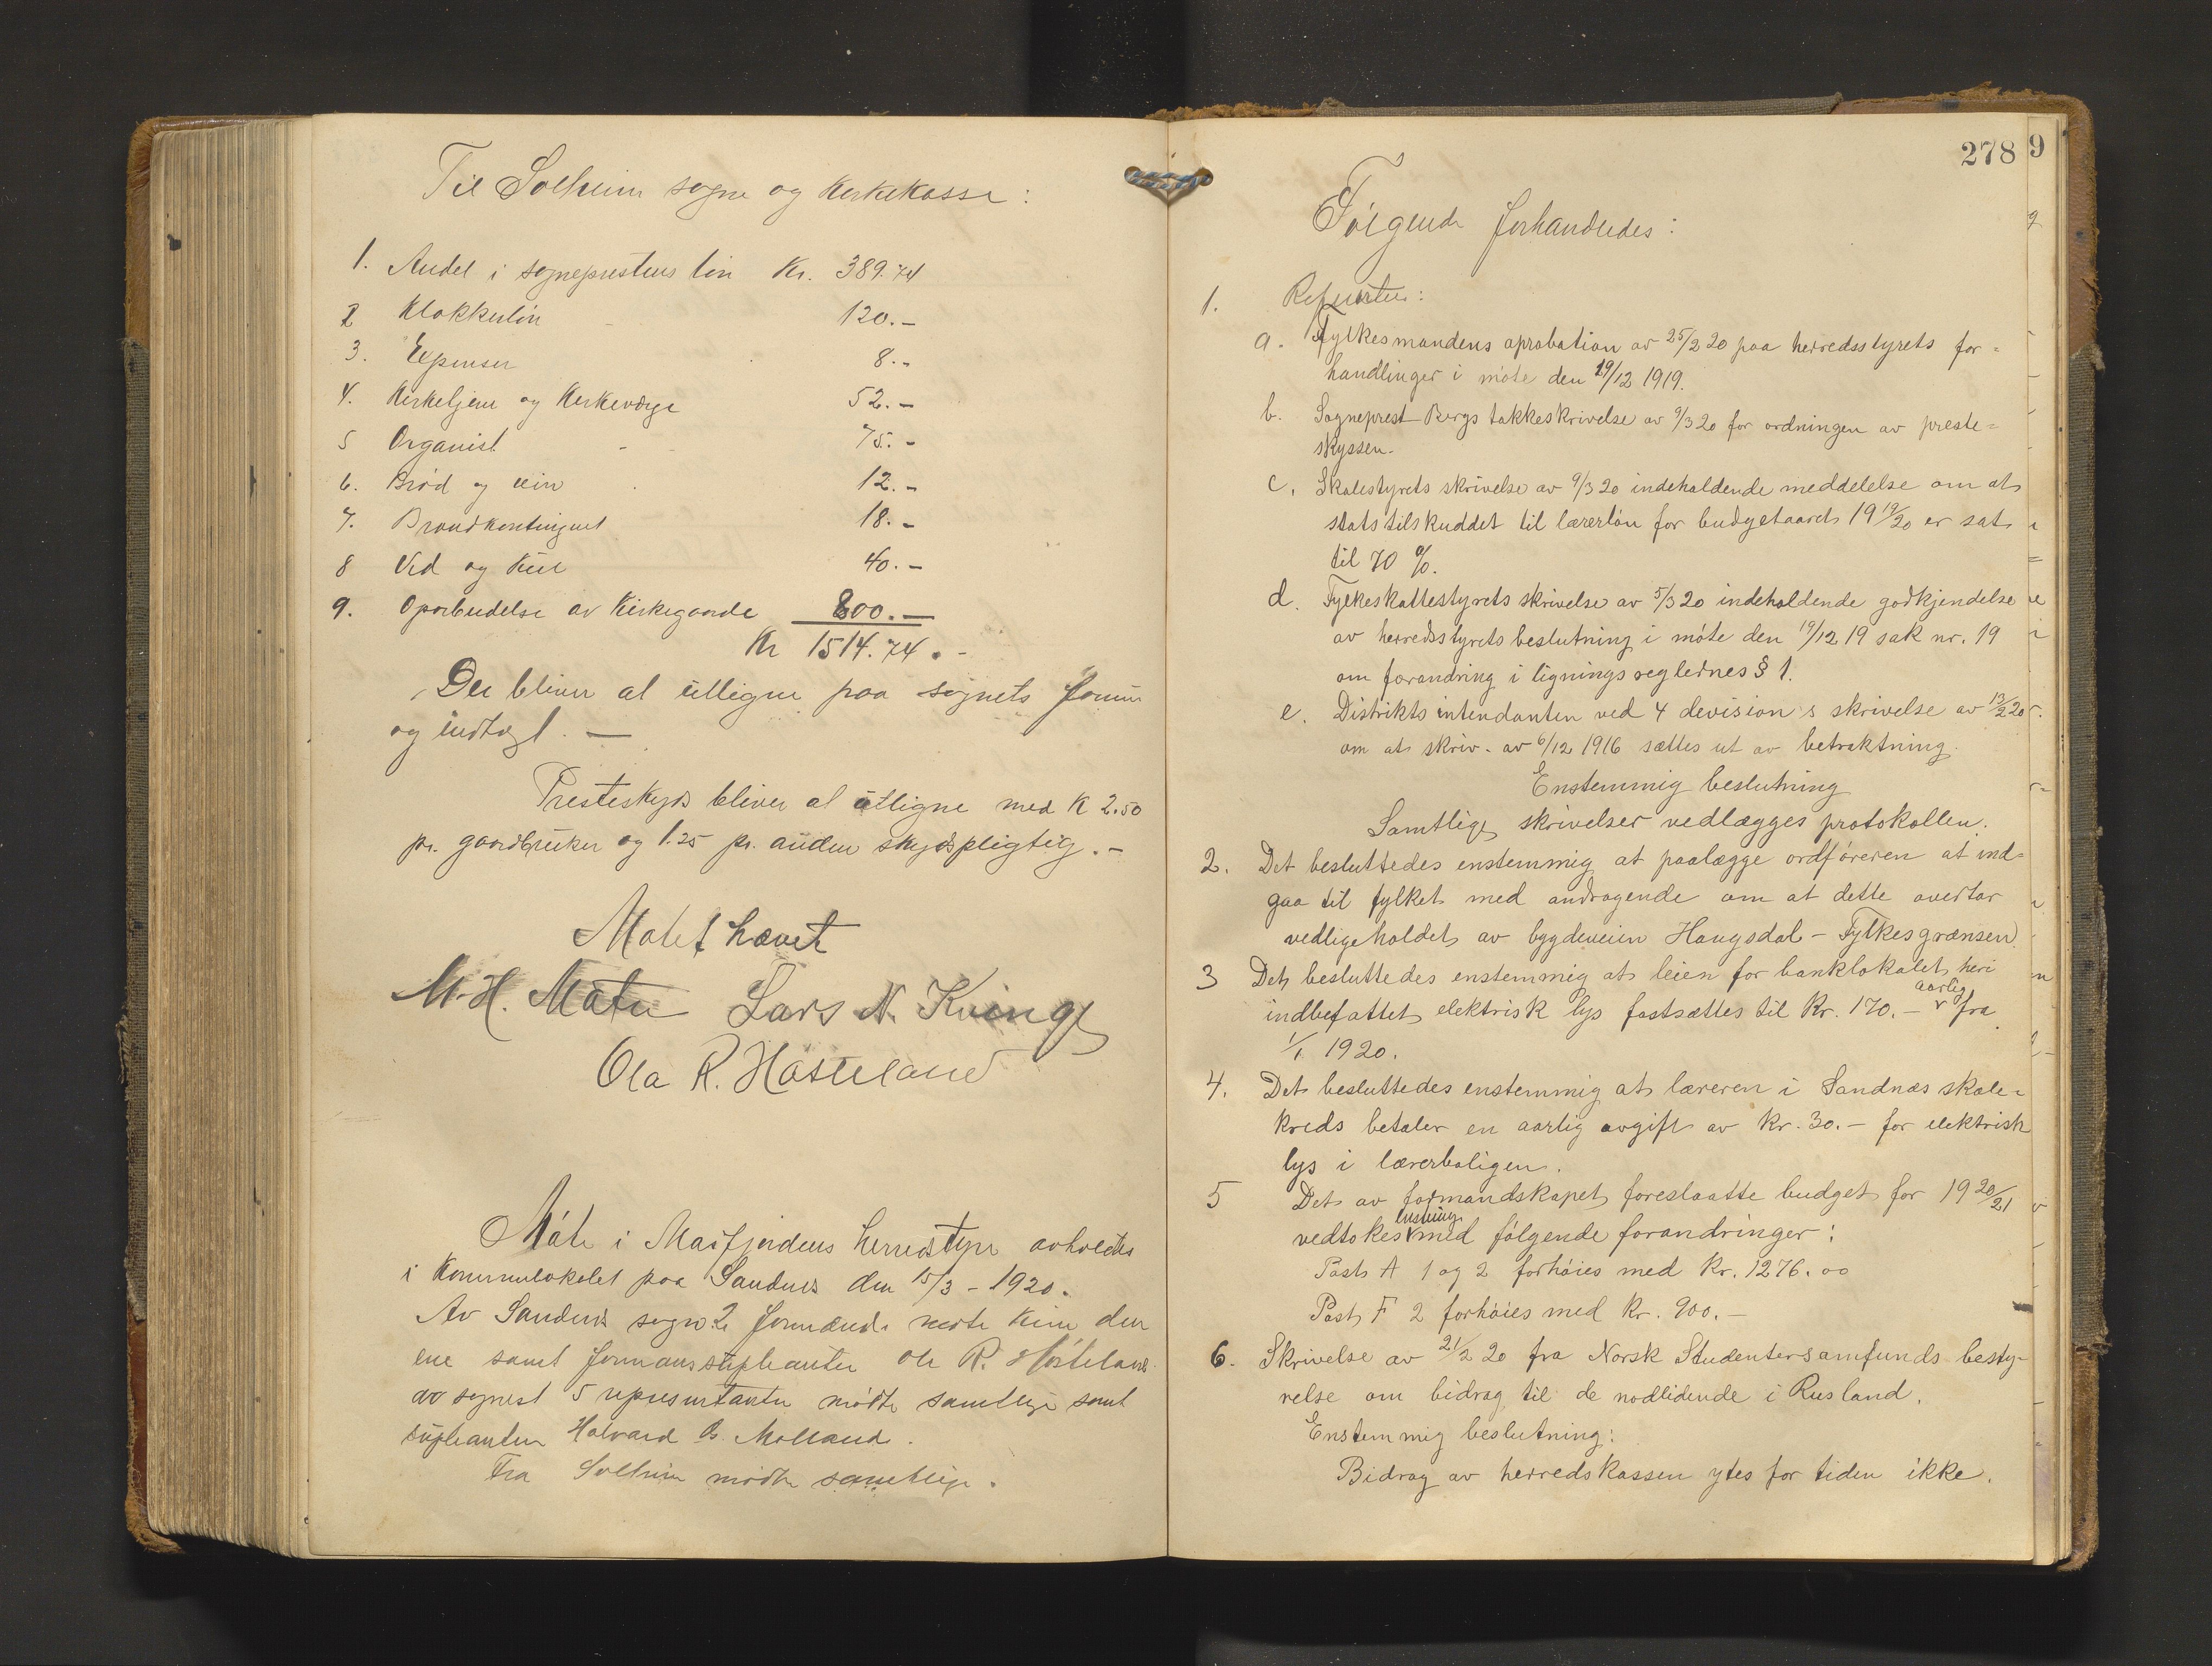 Til Solheim sogne og Kirkekasse:
1. Andel i sogneprestens løn Kr. 389.74
2 Klokkerløn - 120.-
3. Expenser 8.-
4. Kirketjener og Kirkeværge 52.-
5 Organist - - 75.-
6. Brød og vin 12.-
7. Brandkontingent 18.-
8 Ved og Kul 40.-
9. Oparbeidelse av Kirkegaarde 800.-
Kr 1514.74.-
Der bliver at utligne paa sognets formue
og indtægt. —
Presteskyds bliver at utligne med K 2.50
pr. gaardbruker og 1.25 pr. anden skydspligtig. -
Møtet hævet
M. H. Matre Lars N. Kvinge
Ola R. Hosteland
Møte i Masfjordens herredstyre avholdtes
i Kommunlokalet paa Sandnes den 15/3 - 1920.
Av Sandnes sogn 2 formænd møtte kun den
ene samt formanssupleanten Ole R. Hosteland
av sognest 5 representanter mødte samtlige samt
supleanten Halvard B. Molland.
Fra Solheim mødte samtlige.
278 9
Følgende forhandledes:
1. Refererter:
a. Fylkesmandens aprobation av 25/2 20 paa herredsstyrets for=
handlinger i møte den 19/12 1919.
b. Sogneprest Bergs takkeskrivelse av 9/3 20 for ordningen av preste=
skyssen.
c. Skolestyrets skrivelse av 9/3 20 indeholdende meddelelse om at
statstilskuddet til lærerløn for budgetaaret 19 19/20 er sat
til 70 %.
d. Fylkeskattestyrets skrivelse av 5/3 20 indeholdende godkjendelse
av herredsstyrets beslutning i møte den 19/12 19 sak nr. 19
om forandring i ligningsreglernes § 1.
e. Distriktsintendanten ved 4 devision s skrivelse av 13/2 20
om at skriv. av 6/12 1916 sættes ut av betraktning.
Enstemmig beslutning
Samtlige skrivelser vedlægges protokollen.
2. Det besluttedes enstemmig at paalægge ordføreren at ind=
gaa til fylket med andragende om at dette overtar
vedligeholdet av bygdeveien Haugsdal - Fylkesgrænsen.
3 Det besluttedes enstemmig at leien for banklokalet, heri
indbefattet elektrisk lys fastsættes til Kr. 170.- aarlig fra
1/1 1920.
4. Det besluttedes enstemmig at læreren i Sandnæs skole=
kreds betaler en aarlig avgift av Kr. 30.- for elektrisk
lys i lærerboligen.
5 Det av formandskapet foreslaatte budget for 19 20/21
vedtokes med følgende forandringer:
Post A 1 og 2 forhøies med Kr. 1276.00
Post F 2 forhøies med Kr. 900.-
6. Skrivelse av 21/2 20 fra Norsk Studentersamfunds besty-
relse om bidrag til de nødlidende i Rusland.
Enstemmig beslutning:
Bidrag av herredskassen ytes for tiden ikke.